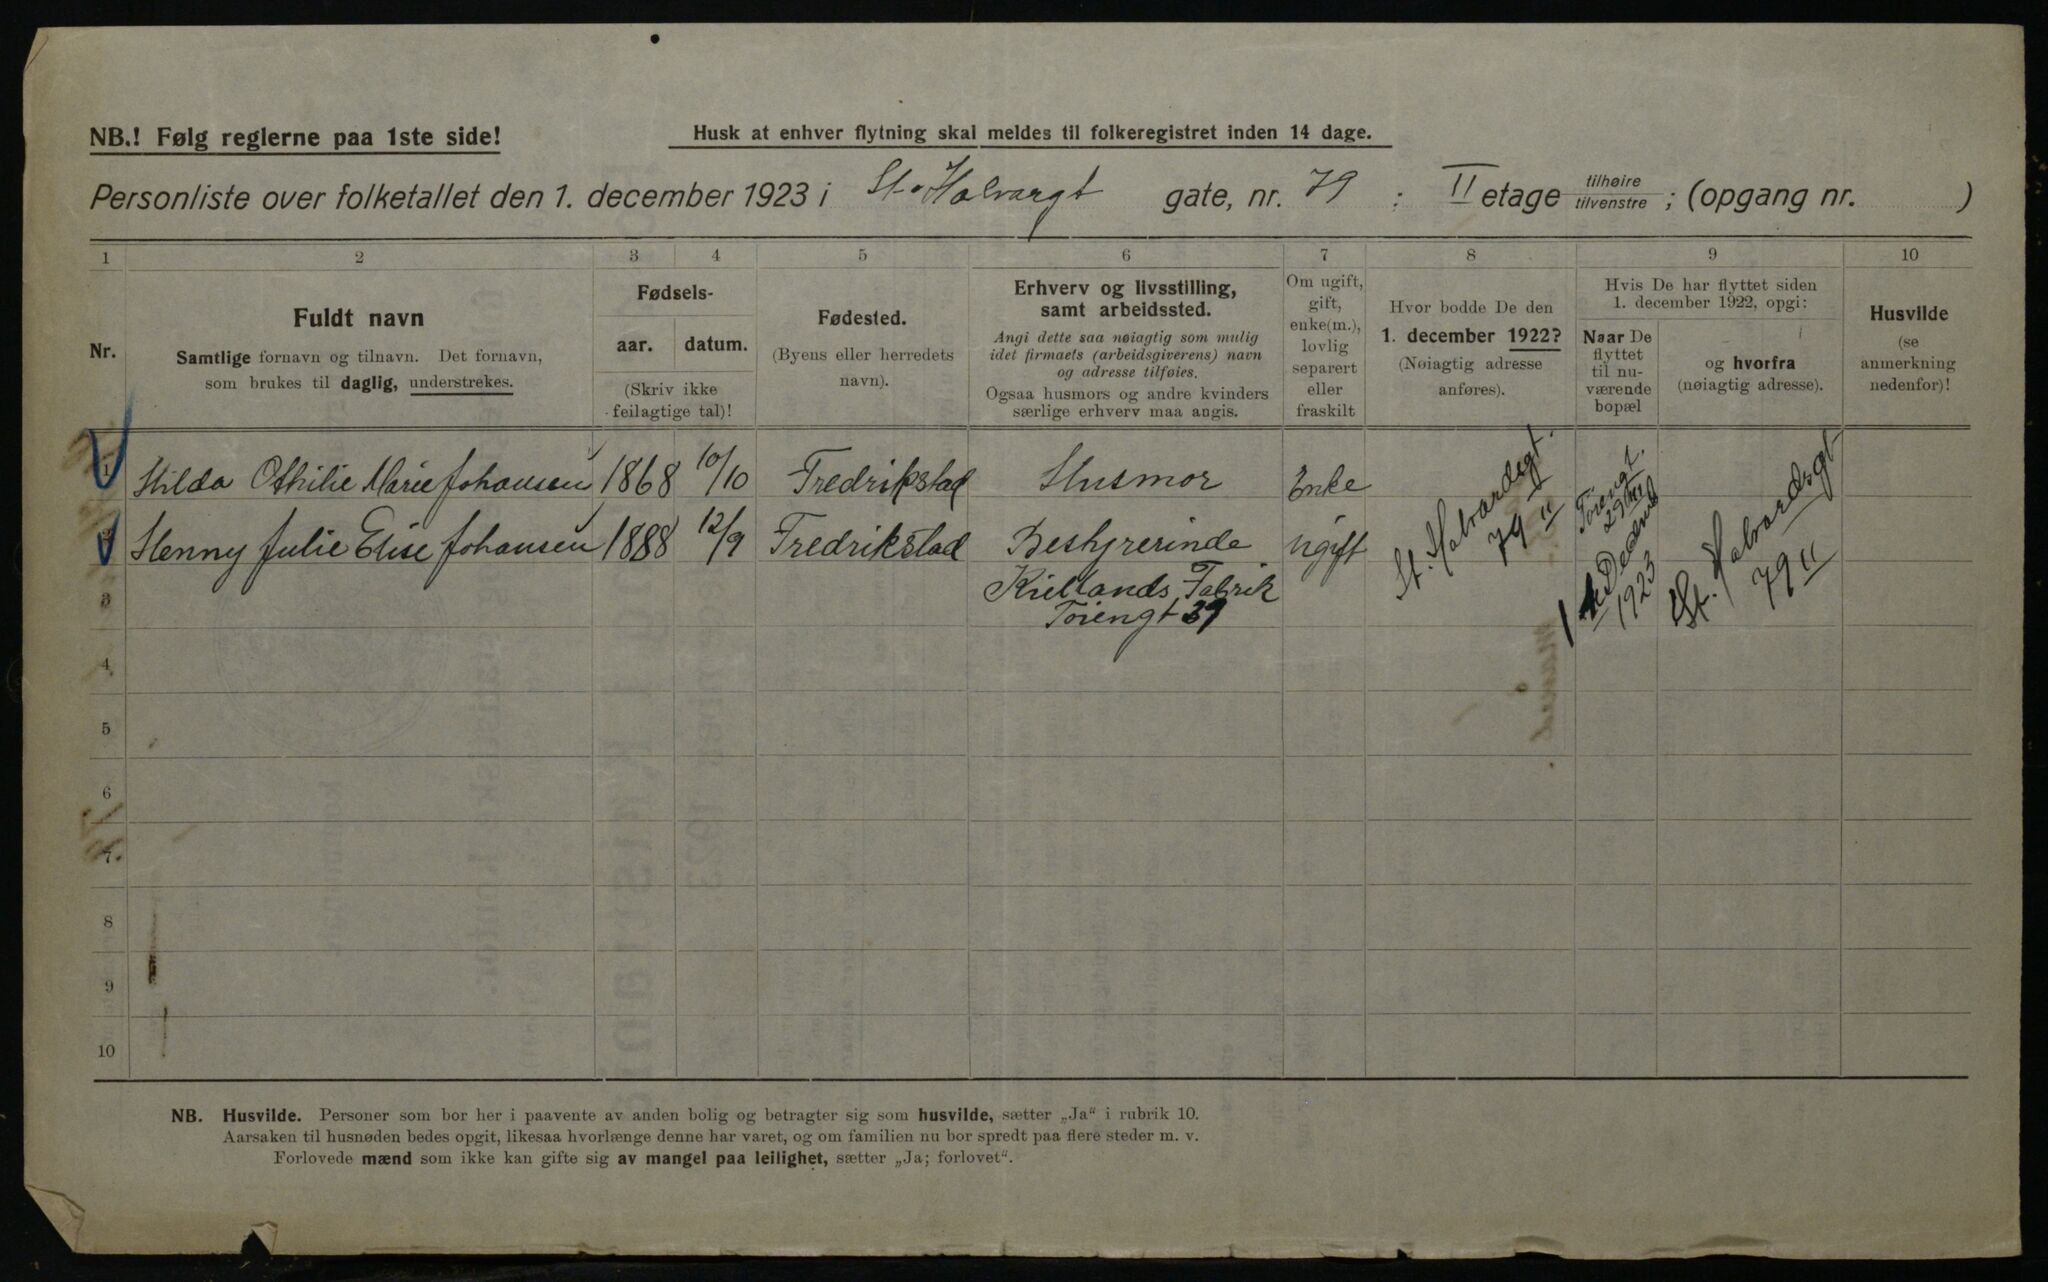 NB.! Følg reglerne paa 1ste side!
Husk at enhver flytning skal meldes til folkeregistret inden 14 dage.
Personliste over folketallet den 1. december 1923 i St. Halvargt gate, nr. 79 : II etage tilhøire tilvenstre ; (opgang nr. )
1 2 3 4 5 6 7 8 9 10
Nr.
Fuldt navn
Samtlige fornavn og tilnavn. Det fornavn,
som brukes til daglig, understrekes.
Fødsels-
aar. datum.
(Skriv ikke
feilagtige tal)!
Fødested.
(Byens eller herredets
navn).
Erhverv og livsstilling,
samt arbeidssted.
Angi dette saa nøiagtig som mulig
idet firmaets (arbeidsgiverens) navn
og adresse tilføies.
Ogsaa husmors og andre kvinders
særlige erhverv maa angis.
Om ugift,
gift,
enke(m.),
lovlig
separert
eller
fraskilt
Hvor bodde De den
1. december 1922?
(Nøiagtig adresse
anføres).
Hvis De har flyttet siden
1. december 1922, opgi:
Naar De
flyttet
til nu-
værende
bopæl
og hvorfra
(nøiagtig adresse).
Husvilde
(se
anmerkning
nedenfor)!
1 Hilda Othilie Marie Johansen 1868 10/10 Fredrikstad Husmor Enke St. Halvardsgt. 79 II
2 Henny Julie Elise Johansen 1888 12/9 Fredrikstad Bestyrerinde ugift
3 Kiellands Fabrik
Töiengt 39
Töiengt.
1923
St. Halvardsgt
79 II
4
5
6
7
8
9
10
NB. Husvilde. Personer som bor her i paavente av anden bolig og betragter sig som husvilde, sætter „Ja“ i rubrik 10.
Aarsaken til husnøden bedes opgit, likesaa hvorlænge denne har varet, og om familien nu bor spredt paa flere steder m. v.
Forlovede mænd som ikke kan gifte sig av mangel paa leilighet, sætter „Ja; forlovet“.